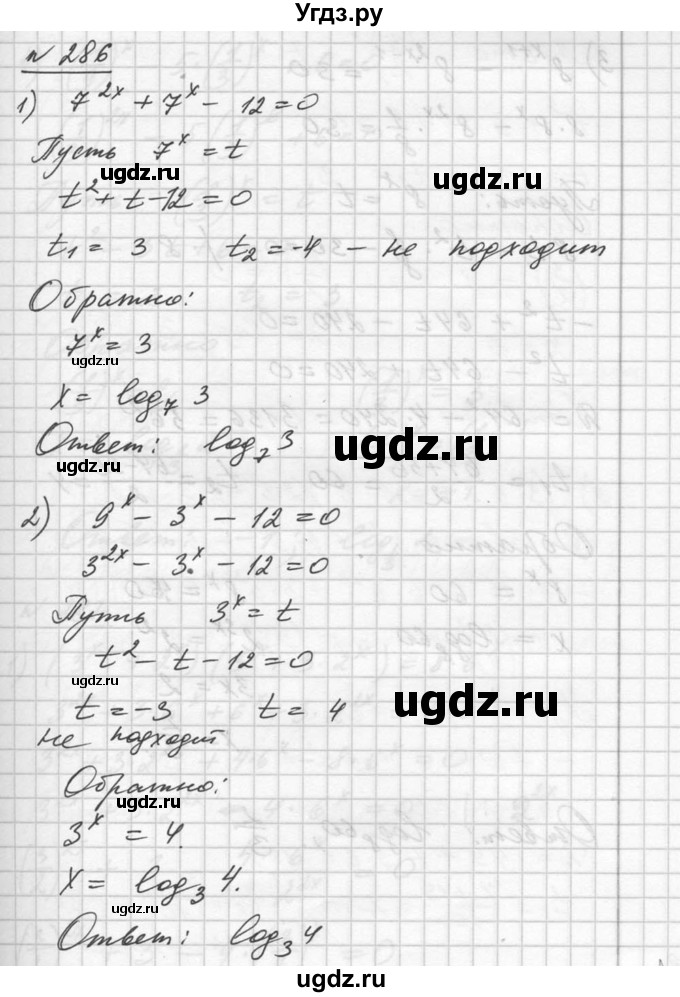 Угдз.ру
n 286
1) 7^{2x} + 7^x - 12 = 0
Пусть 7^x = t
ugdz.ru ugdz.ru
t^2 + t - 12 = 0
t_1 = 3 t_2 = -4 - не подходит
Обратно:
7^x = 3
ugdz.ru
x = log_7 3
Ответ: log_7 3
ugdz.ru ugdz.ru
2) 9^x - 3^x - 12 = 0
3^{2x} - 3^x - 12 = 0
Путь 3^x = t
t^2 - t - 12 = 0
ugdz.ru ugdz.ru
t = -3 t = 4
не подходит
Обратно:
ugdz.ru
3^x = 4.
x = log_3 4.
ugdz.ru
Ответ: log_3 4
ugdz.ru